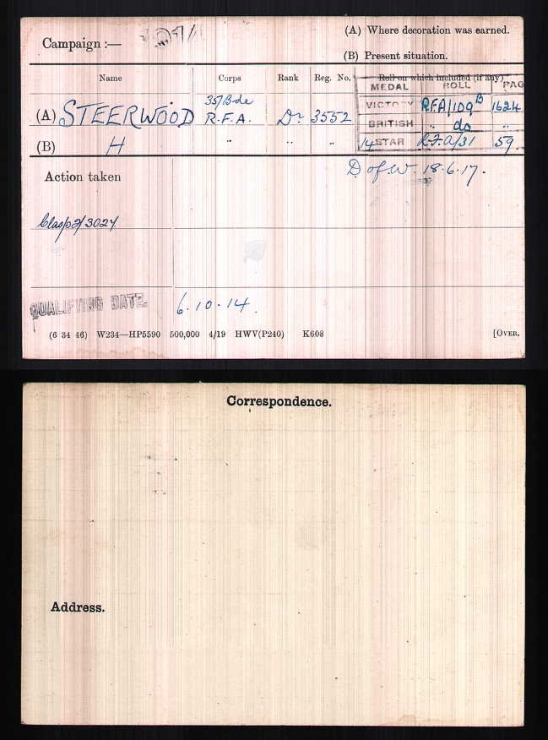 (A) Where decoration was earned.
Campaign :—
(B) Present situation.
Name Corps Rank Reg. No. Roll on which included (if any)
MEDAL ROLL PAG
35/Bde
(A) STEERWOOD R.F.A. Dr 3552
VICTORY RFA/109B 1624
BRITISH do "
(B) H " " "
14 STAR R.F.A/31 59
Action taken
D of W. 18.6.17.
Clasp 3024
QUALIFYING DATE 6.10.14.
(6 34 46) W234—HP5590 500,000 4/19 HWV(P240) K608 [OVER.
Correspondence.
Address.